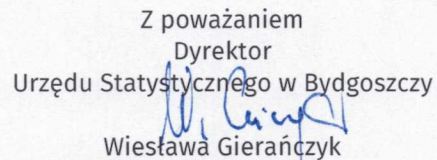 Z poważaniem
Dyrektor
Urzędu Statystycznego w Bydgoszczy
Wiesława Gierańczyk